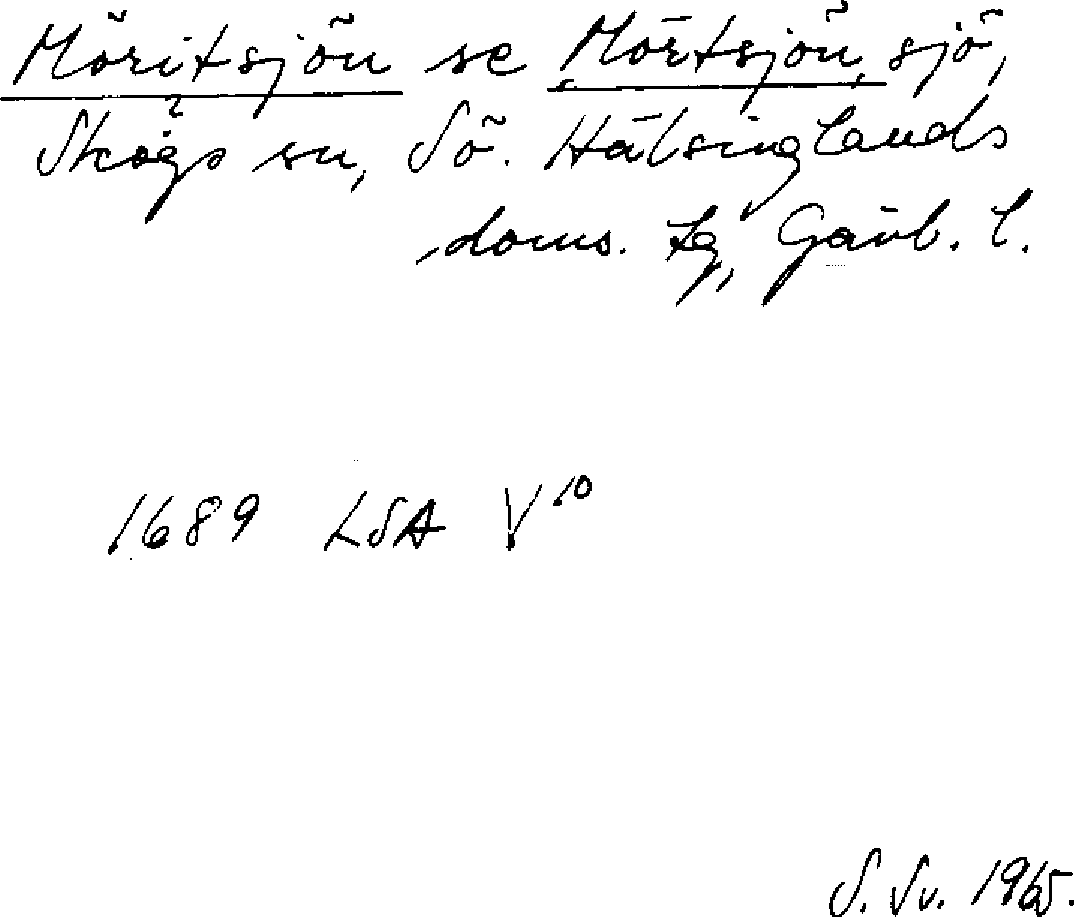 Möritsjön se Mörtsjön, sjö,
Skogs sn, Sö. Hälsinglands
doms. tg, Gävl. l.
1689 LSA V¹⁰
S. Sv. 1965.